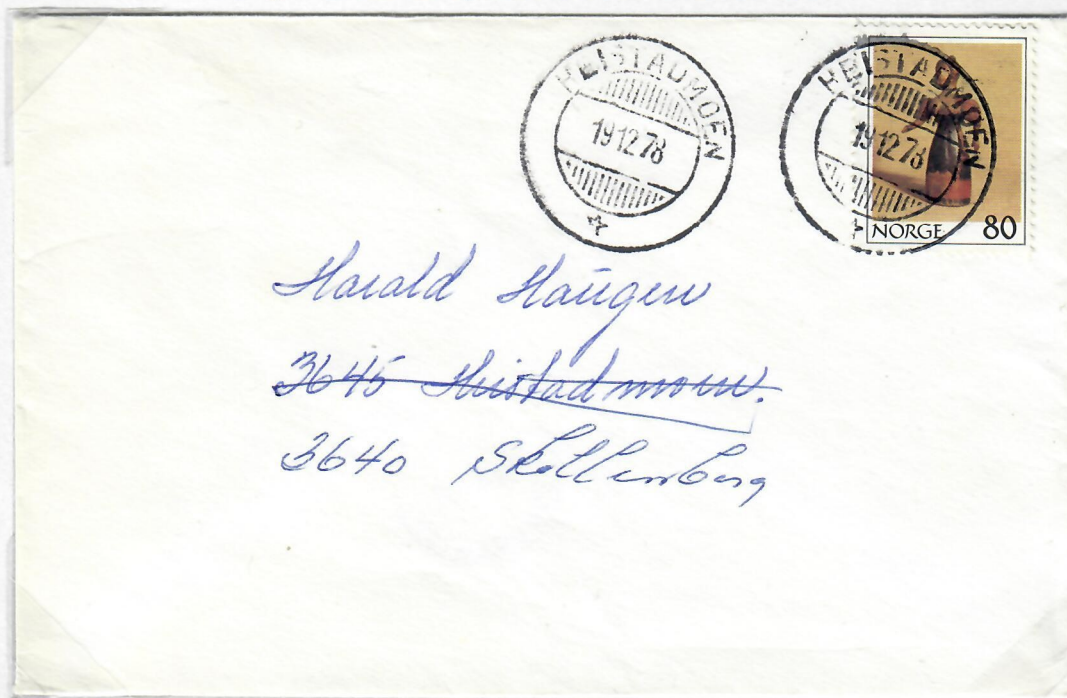 HEISTADMOEN
19 12 78
HEISTADMOEN
19 12 78
NORGE 80
Harald Haugen
3645 Heistadmoen.
3640 Skollenborg